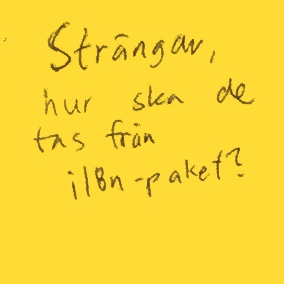 Strängar,
hur ska de
tas från
i18n-paket?